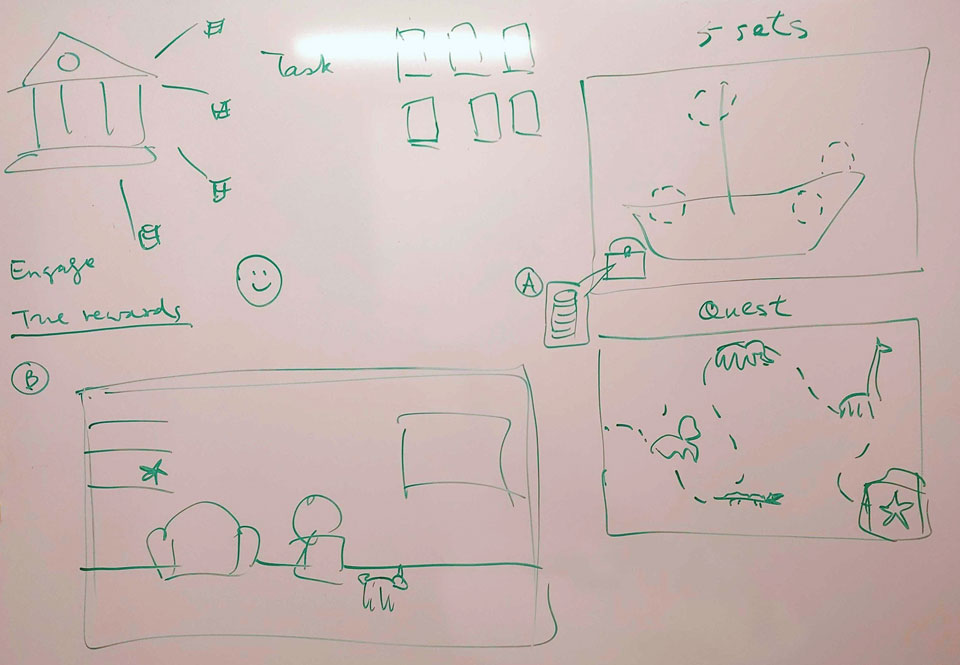 Task
5 sets
Engage
True rewards
A
Quest
B